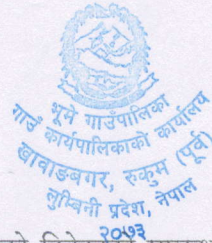 भूमे गाउँपालिका
गाउँ कार्यपालिकाको कार्यालय
खावाङबगर, रुकुम (पूर्व)
लुम्बिनी प्रदेश, नेपाल
२०७३